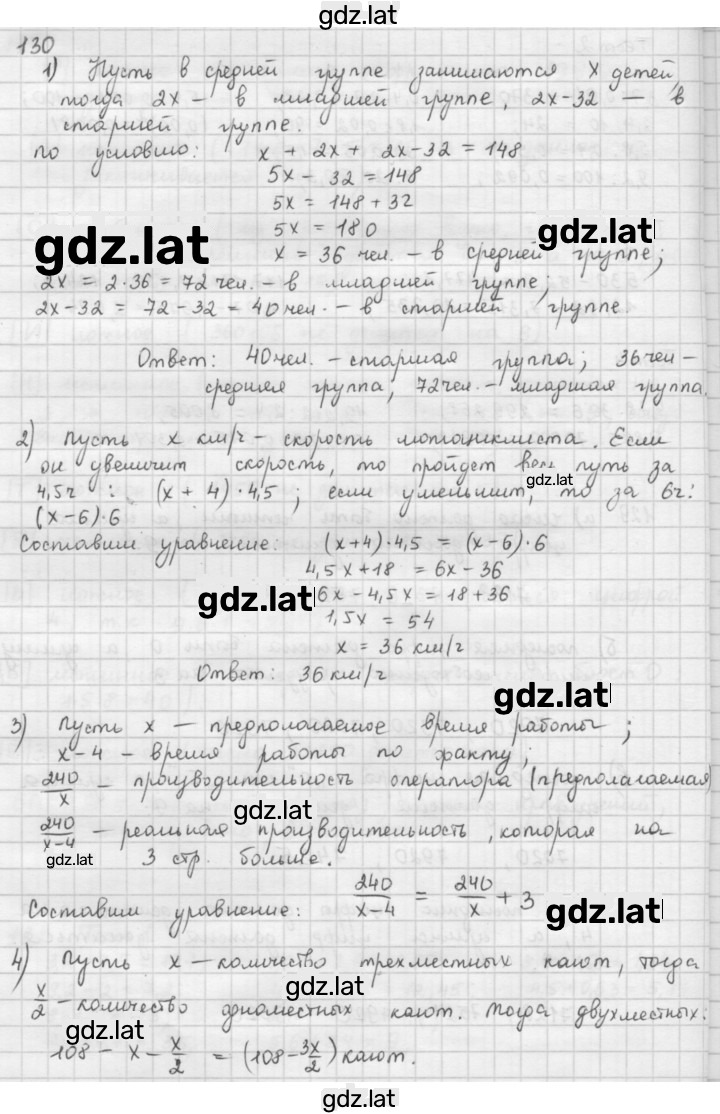 gdz.lat
130
1) Пусть в средней группе занимаются x детей,
тогда 2x — в младшей группе, 2x-32 — в
старшей группе.
по условию: x + 2x + 2x-32 = 148
5x - 32 = 148
5x = 148 + 32
5x = 180
gdz.lat
gdz.lat
x = 36 чел. - в средней группе;
2x = 2·36 = 72 чел. - в младшей группе;
2x-32 = 72-32 = 40 чел. - в старшей группе
Ответ: 40 чел. - старшая группа; 36 чел -
средняя группа; 72 чел. - младшая группа.
2) Пусть x км/ч - скорость мотоциклиста. Если
он увеличит скорость, то пройдет путь за
gdz.lat
4,5 ч : (x + 4)·4,5 ; если уменьшит, то за 6ч:
(x-6)·6
Составим уравнение: (x+4)·4,5 = (x-6)·6
4,5x+18 = 6x-36
gdz.lat
6x - 4,5x = 18+36
1,5x = 54
x = 36 км/ч
Ответ: 36 км/ч
gdz.lat
3) Пусть x — предполагаемое время работы ;
x-4 - время работы по факту;
240/x — производительность оператора (предполагаемая)
gdz.lat
240/x-4 — реальная производительность, которая на
gdz.lat
3 стр. больше.
Составим уравнение: 240/x-4 = 240/x + 3
gdz.lat
4) Пусть x — количество трехместных кают, тогда
gdz.lat
x/2 - количество одноместных кают. Тогда двухместных:
gdz.lat
108 - x - x/2 = (108 - 3x/2) кают.
gdz.lat